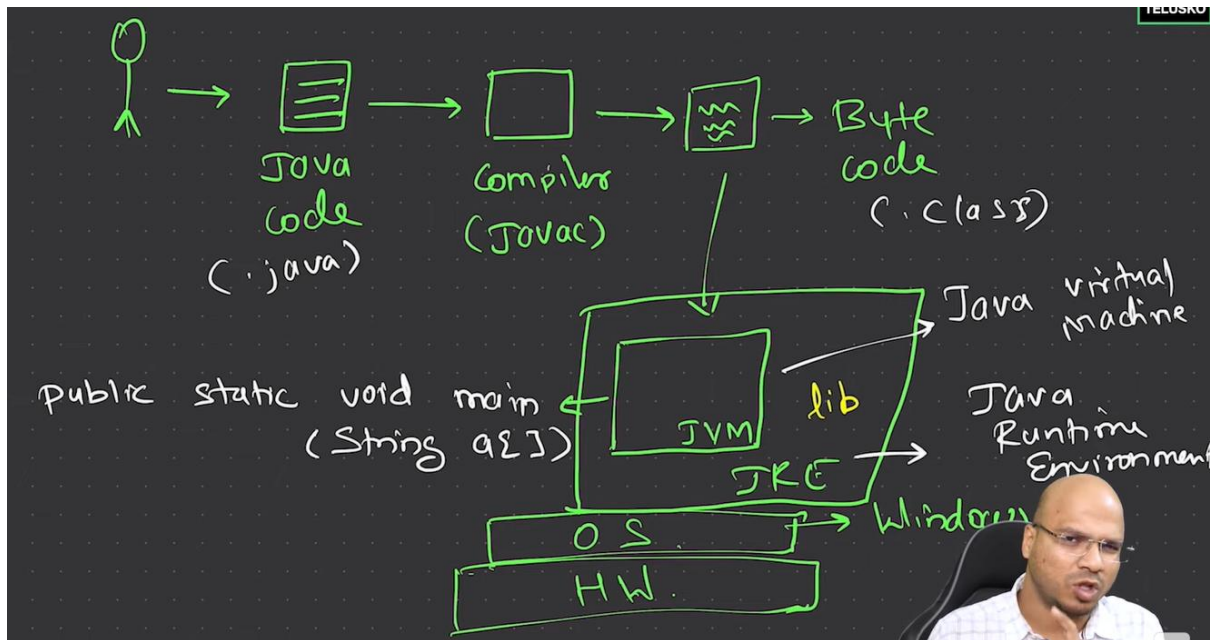 TELUSKO
Java
code
(.java)
Compiler
(Javac)
Byte
code
(.class)
Java virtual
Machine
public static void main
(String a[])
JVM
lib
JRE
Java
Runtime
Environment
OS.
Windows
HW.